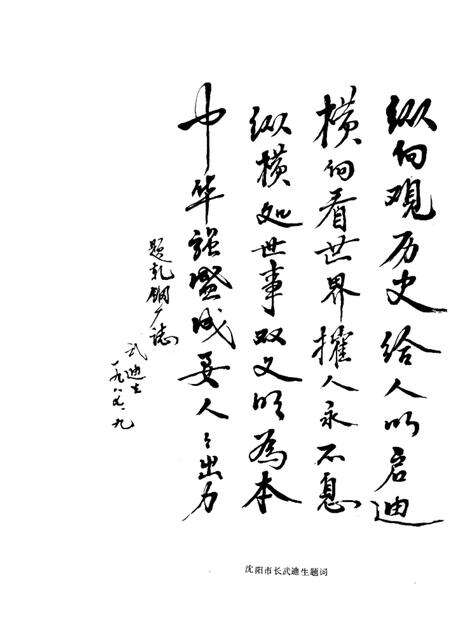 纵向观历史给人以启迪
横向看世界摧人永不息
纵横处世事双文明为本
中华强盛成要人々出力
题轧钢厂志
武迪生
一九八七.九
沈阳市长武迪生题词